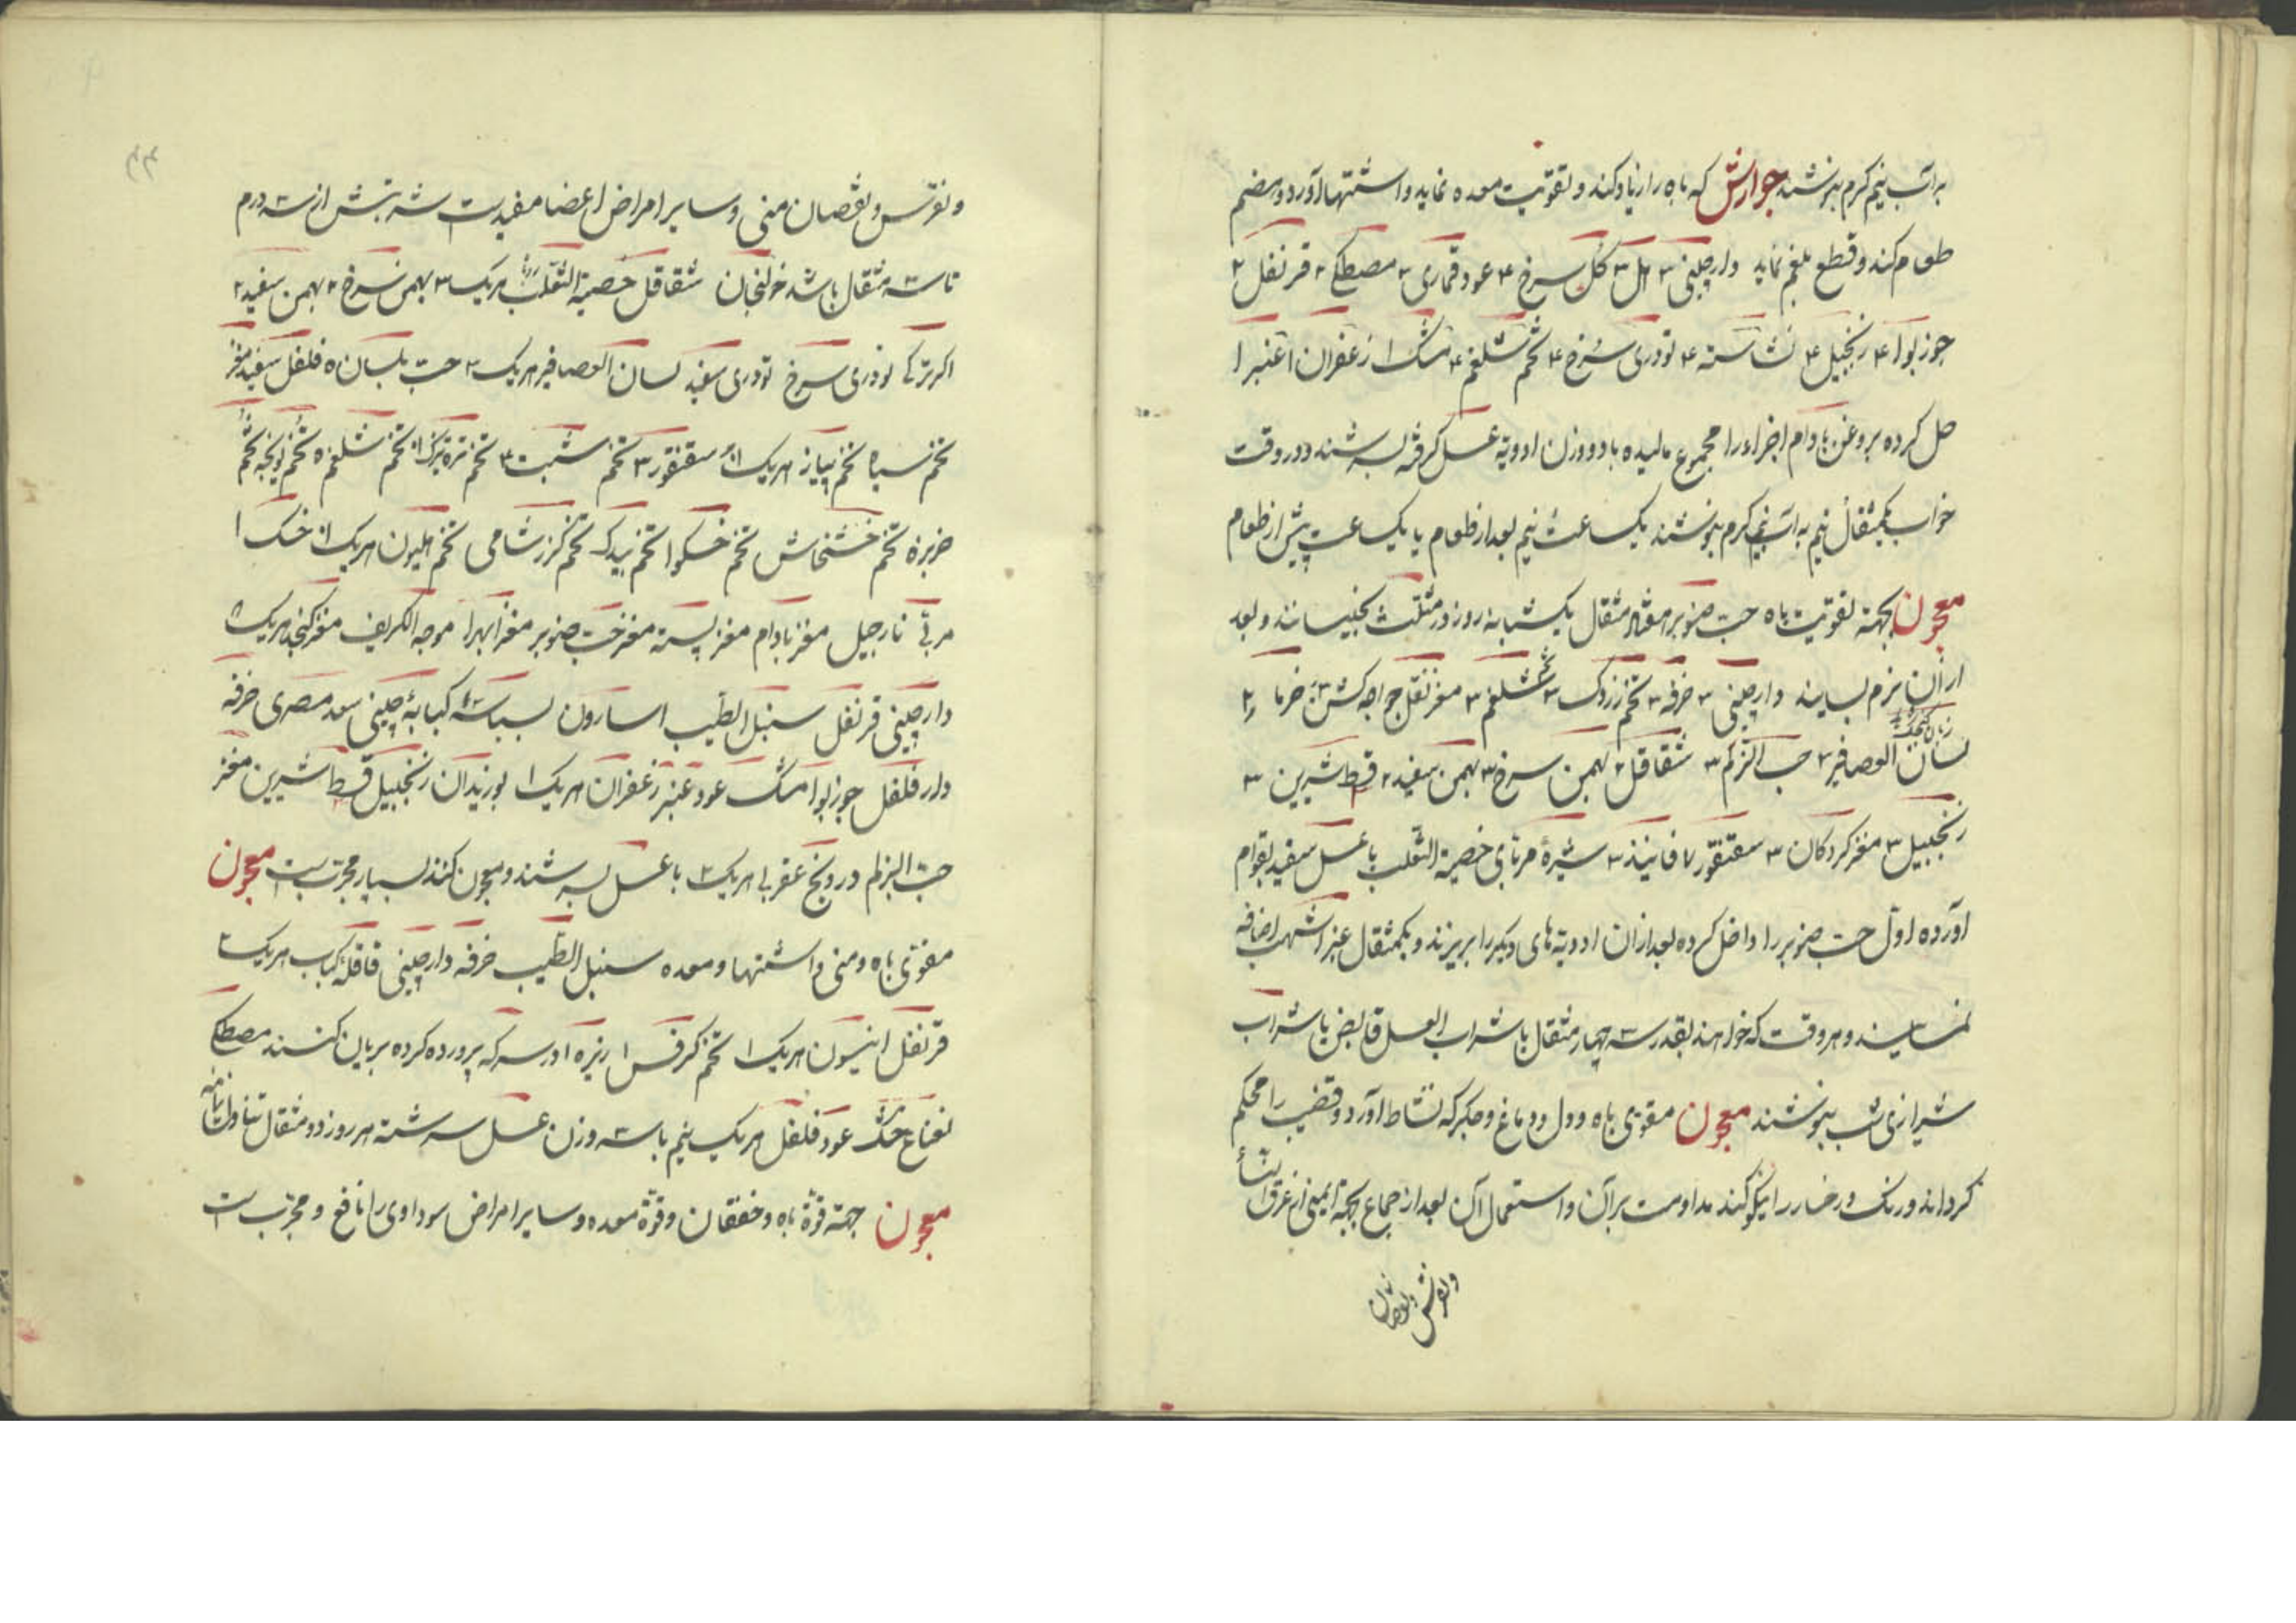 براتب نیم کرم بنوشند جوارش که باه را زیاد کند و تقویت معده نماید و اشتها آورد و هضم
طعام کند و قطع بلغم نماید دارچینی ۳ هل ۳ کل سرخ ۴ عود قماری ۳ مصطکی ۲ قرنفل ۲
جوز بوا ۴ زنجبیل ۴ نشاسته ۴ تودری سرخ ۴ تخم شلغم ۴ مشک ۱ زعفران ۱ عنبر ۱
حل کرده بروغن بادام اجزاء را مجموع مالیده با دو وزن ادویه عسل کرفته بسرشند در وقت
خواب یکمثقال نیم به آب نیم کرم بنوشند یکساعت نیم بعد از طعام یا یکساعت پیش از طعام
معجون بجهة تقویت باه حب صنوبر هفتاد مثقال یکشبانه روز در مثلث بخیسانند و بعد
از آن نرم بسایند دارچینی ۳ خرفه ۳ تخم زردک ۳ تخم شلغم ۳ مغز نقل خرما
زبان کنجشک
لسان العصافیر ۲ حب الزلم ۳ شقاقل ۲ بهمن سرخ ۳ بهمن سفید ۲ قسط شیرین ۳
زنجبیل ۳ مغز کردکان ۳ سقنقور ۷ فانیذ ۳ شیرهٔ مربای خصیة الثعلب با عسل سفید بقوام
آورده اول حب صنوبر را داخل کرده بعد ازان ادویه های دیکر را بریزند و یکمثقال عنبر اشهب اضافه
نمایند و هر وقت که خواهند بقدر سه چهار مثقال با شراب العسل قابض یا شراب
شیرازی شب بنوشند معجون مقوی باه و دل و دماغ و جکر که نشاط آورد و قضیب را محکم
کرداند و رنک و رخسار را نیکو کند مداومت بر آن و استعمال آن بعد از جماع بجهة ایمنی از عرق النسأ
و نقرس و نقصان
۴۴
و نقرس و نقصان منی و سایر امراض اعضا مفیدست شربتش از سه درم
تا سه مثقال باشد خولنجان شقاقل خصیة الثعلب هریک ۳ بهمن سرخ ۲ بهمن سفید ۲
اکر ترکی تودری سرخ تودری سفید لسان العصافیر هریک ۲ حب بلسان ۵ فلفل سفید مغز
تخم پیاز هریک سقنقور ۳ تخم شبت ۳ تخم تره تیزک تخم شلغم ۵ تخم یونجه تخم
خربزه تخم خشخاش تخم تخم تخم کرز شامی تخم هلیون هریک خسک ۱
مربی نارجیل مغز بادام مغز پسته مغز حب صنوبر مغز مغز کنجد هریک ۵
دارچینی قرنفل سنبل الطیب اسارون بسباسه کبابهٔ چینی سعد مصری خرفه
دار فلفل جوز بوا مشک عود عنبر زعفران هریک ۱ بوزیدان زنجبیل قسط شیرین مغز
حب الزلم درونج عقربی هریک ۲ با عسل بسرشند و معجون کنند بسیار مجربست معجون
مقوی باه و منی و اشتها و معده سنبل الطیب خرفه دارچینی قاقله کبابه هریک ۲
قرنفل انیسون هریک ۱ تخم کرفس ۱ زیره ۱ در سرکه پرورده کرده بریان کنند مصطکی
نعناع خشک عود فلفل هریک نیم با سه وزن عسل سرشته هر روز دو مثقال تناول نمایند
معجون جهة قوة باه و خفقان و قوة معده و سایر امراض سوداوی را نافع و مجربست